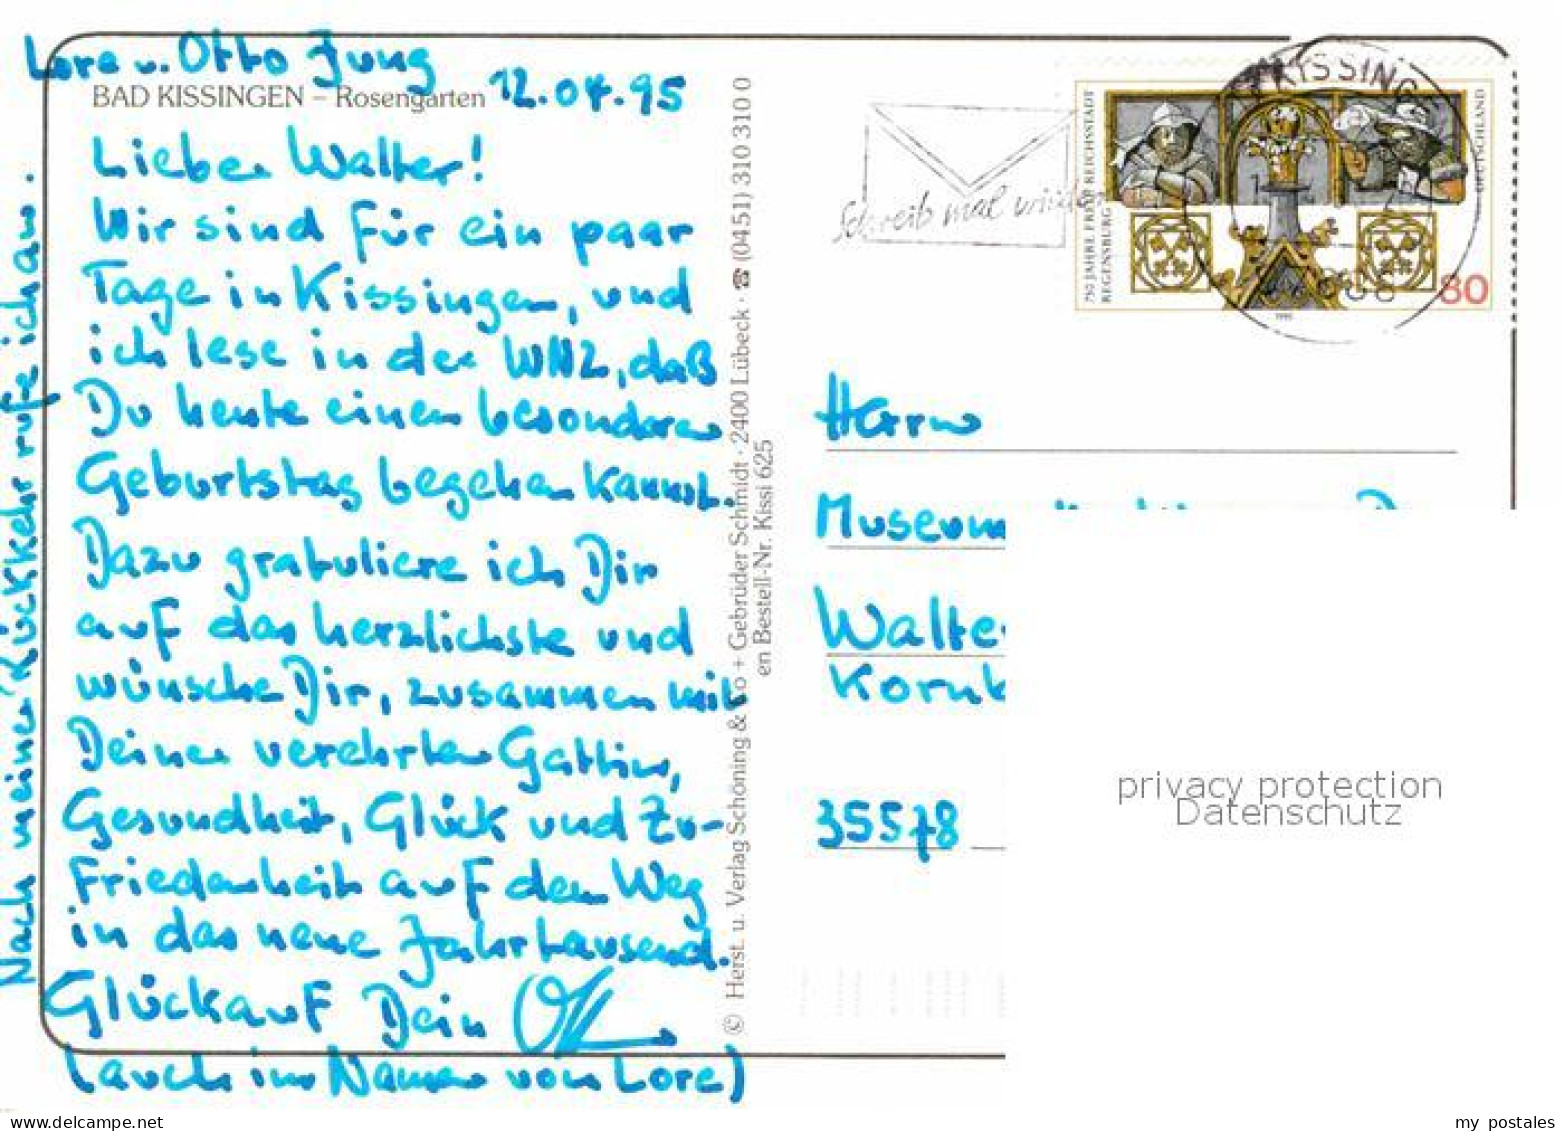 Lore u. Otto Jung
12.04.95
BAD KISSINGEN – Rosengarten
Lieber Walter!
Wir sind für ein paar
Tage in Kissingen, und
ich lese in der WNZ, daß
Du heute einen besonderen
Geburtstag begehen kannst.
Dazu gratuliere ich Dir
auf das herzlichste und
wünsche Dir, zusammen mit
Deiner verehrten Gattin,
Gesundheit, Glück und Zu-
friedenheit auf dem Weg
in das neue Jahrtausend.
Glückauf Dein Otto
(auch im Namen von Lore)
Nach meiner Rückkehr rufe ich an.
© Herst. u. Verlag Schöning & Co + Gebrüder Schmidt · 2400 Lübeck · ☎ (0451) 310 310 0
en Bestell-Nr. Kissi 625
Schreib mal wieder
KISSING
750 JAHRE FREIE REICHSSTADT
REGENSBURG
DEUTSCHLAND
80
1995
Herrn
Museum
Walte
Korn
35578
privacy protection
Datenschutz
my postales